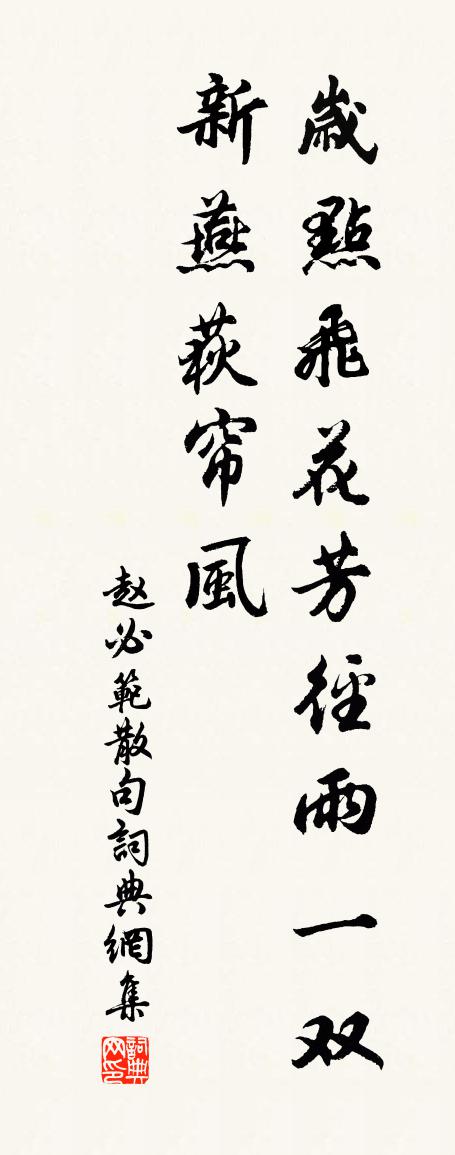 歲點飛花芳徑雨一双
新燕荻帘風
赵必範散句詞典網集
詞典网印